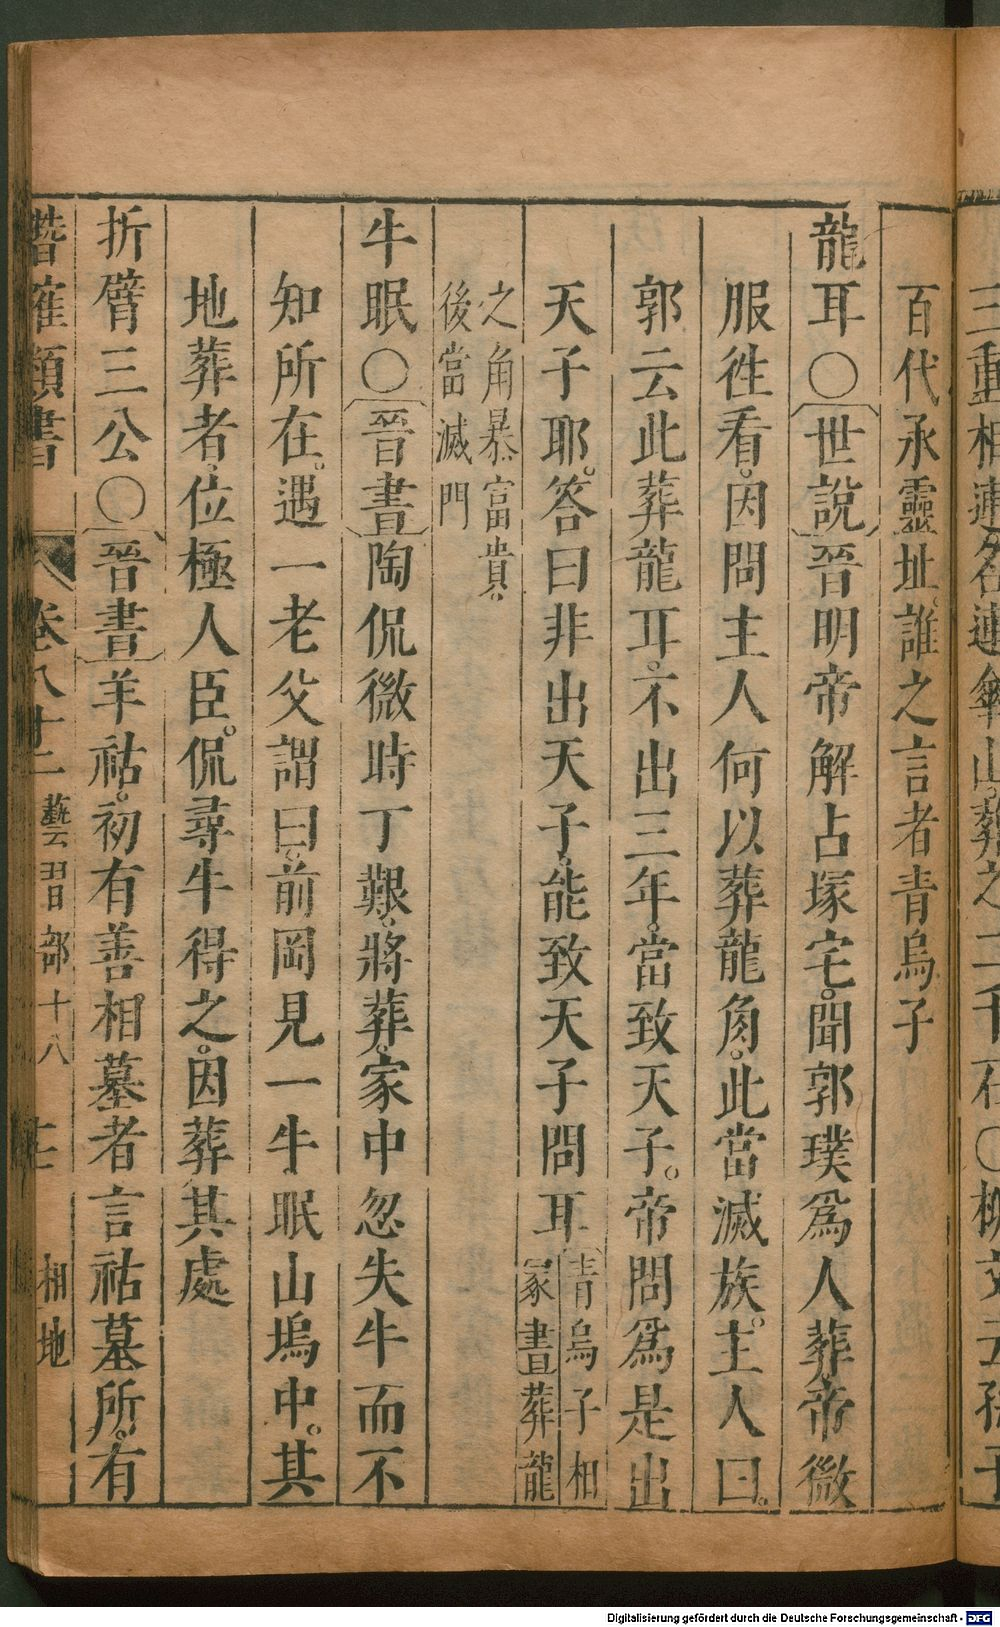 百代承靈址。誰之言者青烏子
龍耳○世說晉明帝解占塚宅。聞郭璞爲人葬。帝微
服徃看。因問主人何以葬龍角。此當滅族。主人曰。
郭云此葬龍耳。不出三年。當致天子。帝問爲是出
天子耶。答曰非出天子。能致天子問耳青烏子相
冢書葬龍
之角暴富貴。
後當滅門
牛眠○晉書陶侃微時丁艱。將葬。家中忽失牛而不
知所在。遇一老父謂曰。前岡見一牛眠山塢中。其
地葬者。位極人臣。侃尋牛得之。因葬其處
折臂三公○晉書羊祜。初有善相墓者言祜墓所。有
潛確類書 卷八十二 藝習部十八 相地
Digitalisierung gefördert durch die Deutsche Forschungsgemeinschaft - DFG